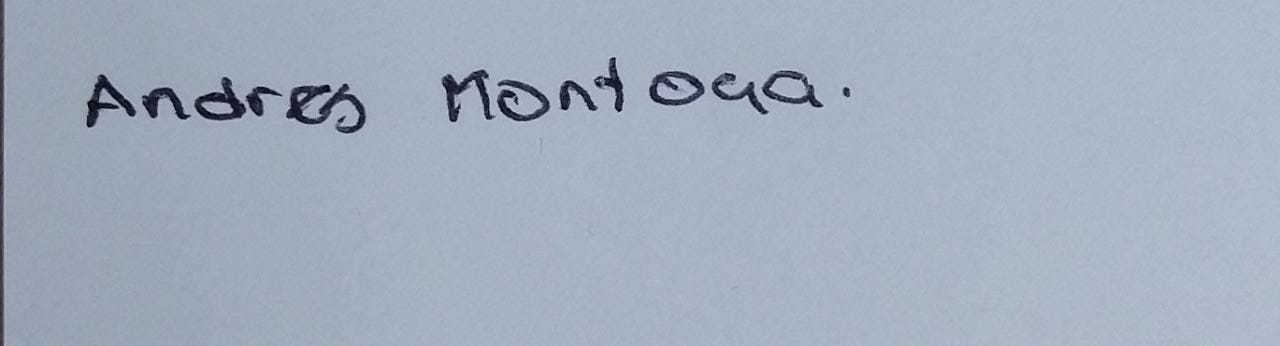 Andres Montoya.